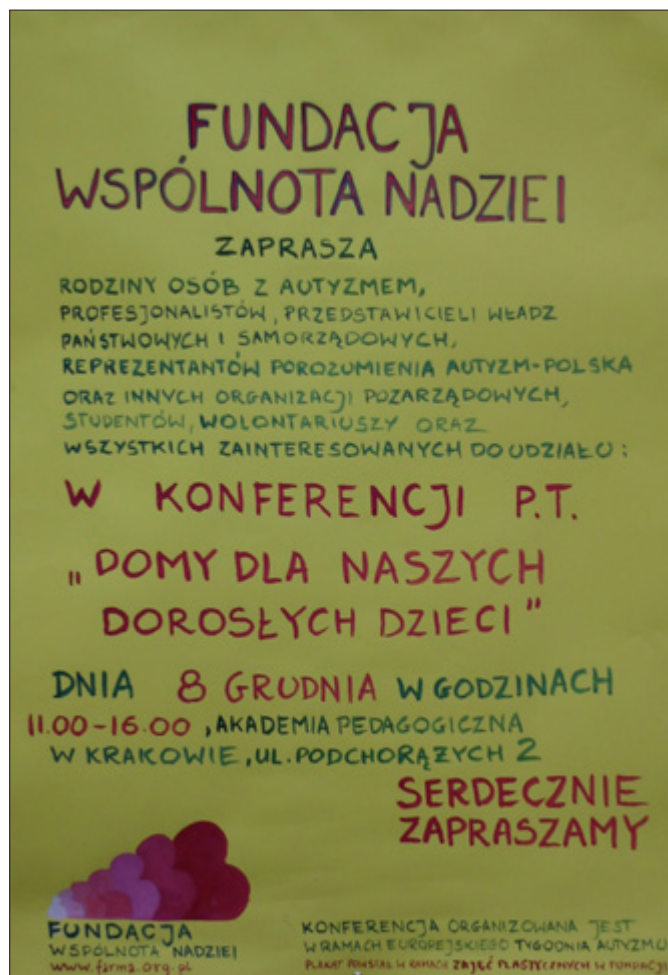 FUNDACJA
WSPÓLNOTA NADZIEI
ZAPRASZA
RODZINY OSÓB Z AUTYZMEM,
PROFESJONALISTÓW, PRZEDSTAWICIELI WŁADZ
PAŃSTWOWYCH I SAMORZĄDOWYCH,
REPREZENTANTÓW POROZUMIENIA AUTYZM-POLSKA
ORAZ INNYCH ORGANIZACJI POZARZĄDOWYCH,
STUDENTÓW, WOLONTARIUSZY ORAZ
WSZYSTKICH ZAINTERESOWANYCH DO UDZIAŁU:
W KONFERENCJI P.T.
„DOMY DLA NASZYCH
DOROSŁYCH DZIECI"
DNIA 8 GRUDNIA W GODZINACH
11.00-16.00, AKADEMIA PEDAGOGICZNA
W KRAKOWIE, UL. PODCHORĄŻYCH 2
SERDECZNIE
ZAPRASZAMY
FUNDACJA
WSPÓLNOTA NADZIEI
www.farma.org.pl
KONFERENCJA ORGANIZOWANA JEST
W RAMACH EUROPEJSKIEGO TYGODNIA AUTYZMU
PLAKAT POWSTAŁ W RAMACH ZAJĘĆ PLASTYCZNYCH W FUNDACJI